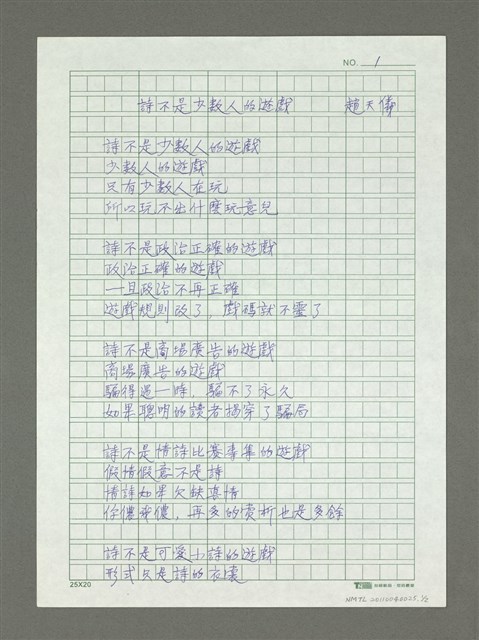 NO. 1
詩不是少數人的遊戲 趙天儀
詩不是少數人的遊戲
少數人的遊戲
只有少數人在玩
所以玩不出什麼玩意兒
詩不是政治正確的遊戲
政治正確的遊戲
一旦政治不再正確
遊戲規則改了，戲碼就不靈了
詩不是商場廣告的遊戲
商場廣告的遊戲
騙得過一時，騙不了永久
如果聰明的讀者揭穿了騙局
詩不是情詩比賽專集的遊戲
假情假意不是詩
情詩如果欠缺真情
你儂我儂，再多的賞析也是多餘
詩不是可愛小詩的遊戲
形式只是詩的衣裳
25X20
NMTL 20110040025.1/2